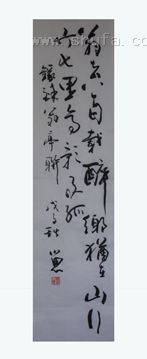 翁去八百載醉鄉猶在山行
六七里亭影不孤
錄醉翁亭聯
戊子秋